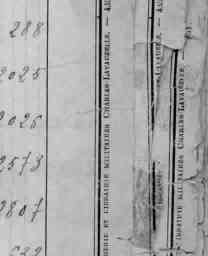 288
2025
2026
2573
2807
622
ERIE ET LIBRAIRIE MILITAIRES CHARLES-LAVAUZELLE. —
LAVAUZELLE. —
IBRAIRIE MILITAIRES CHARLES-LAVAUZELLE —